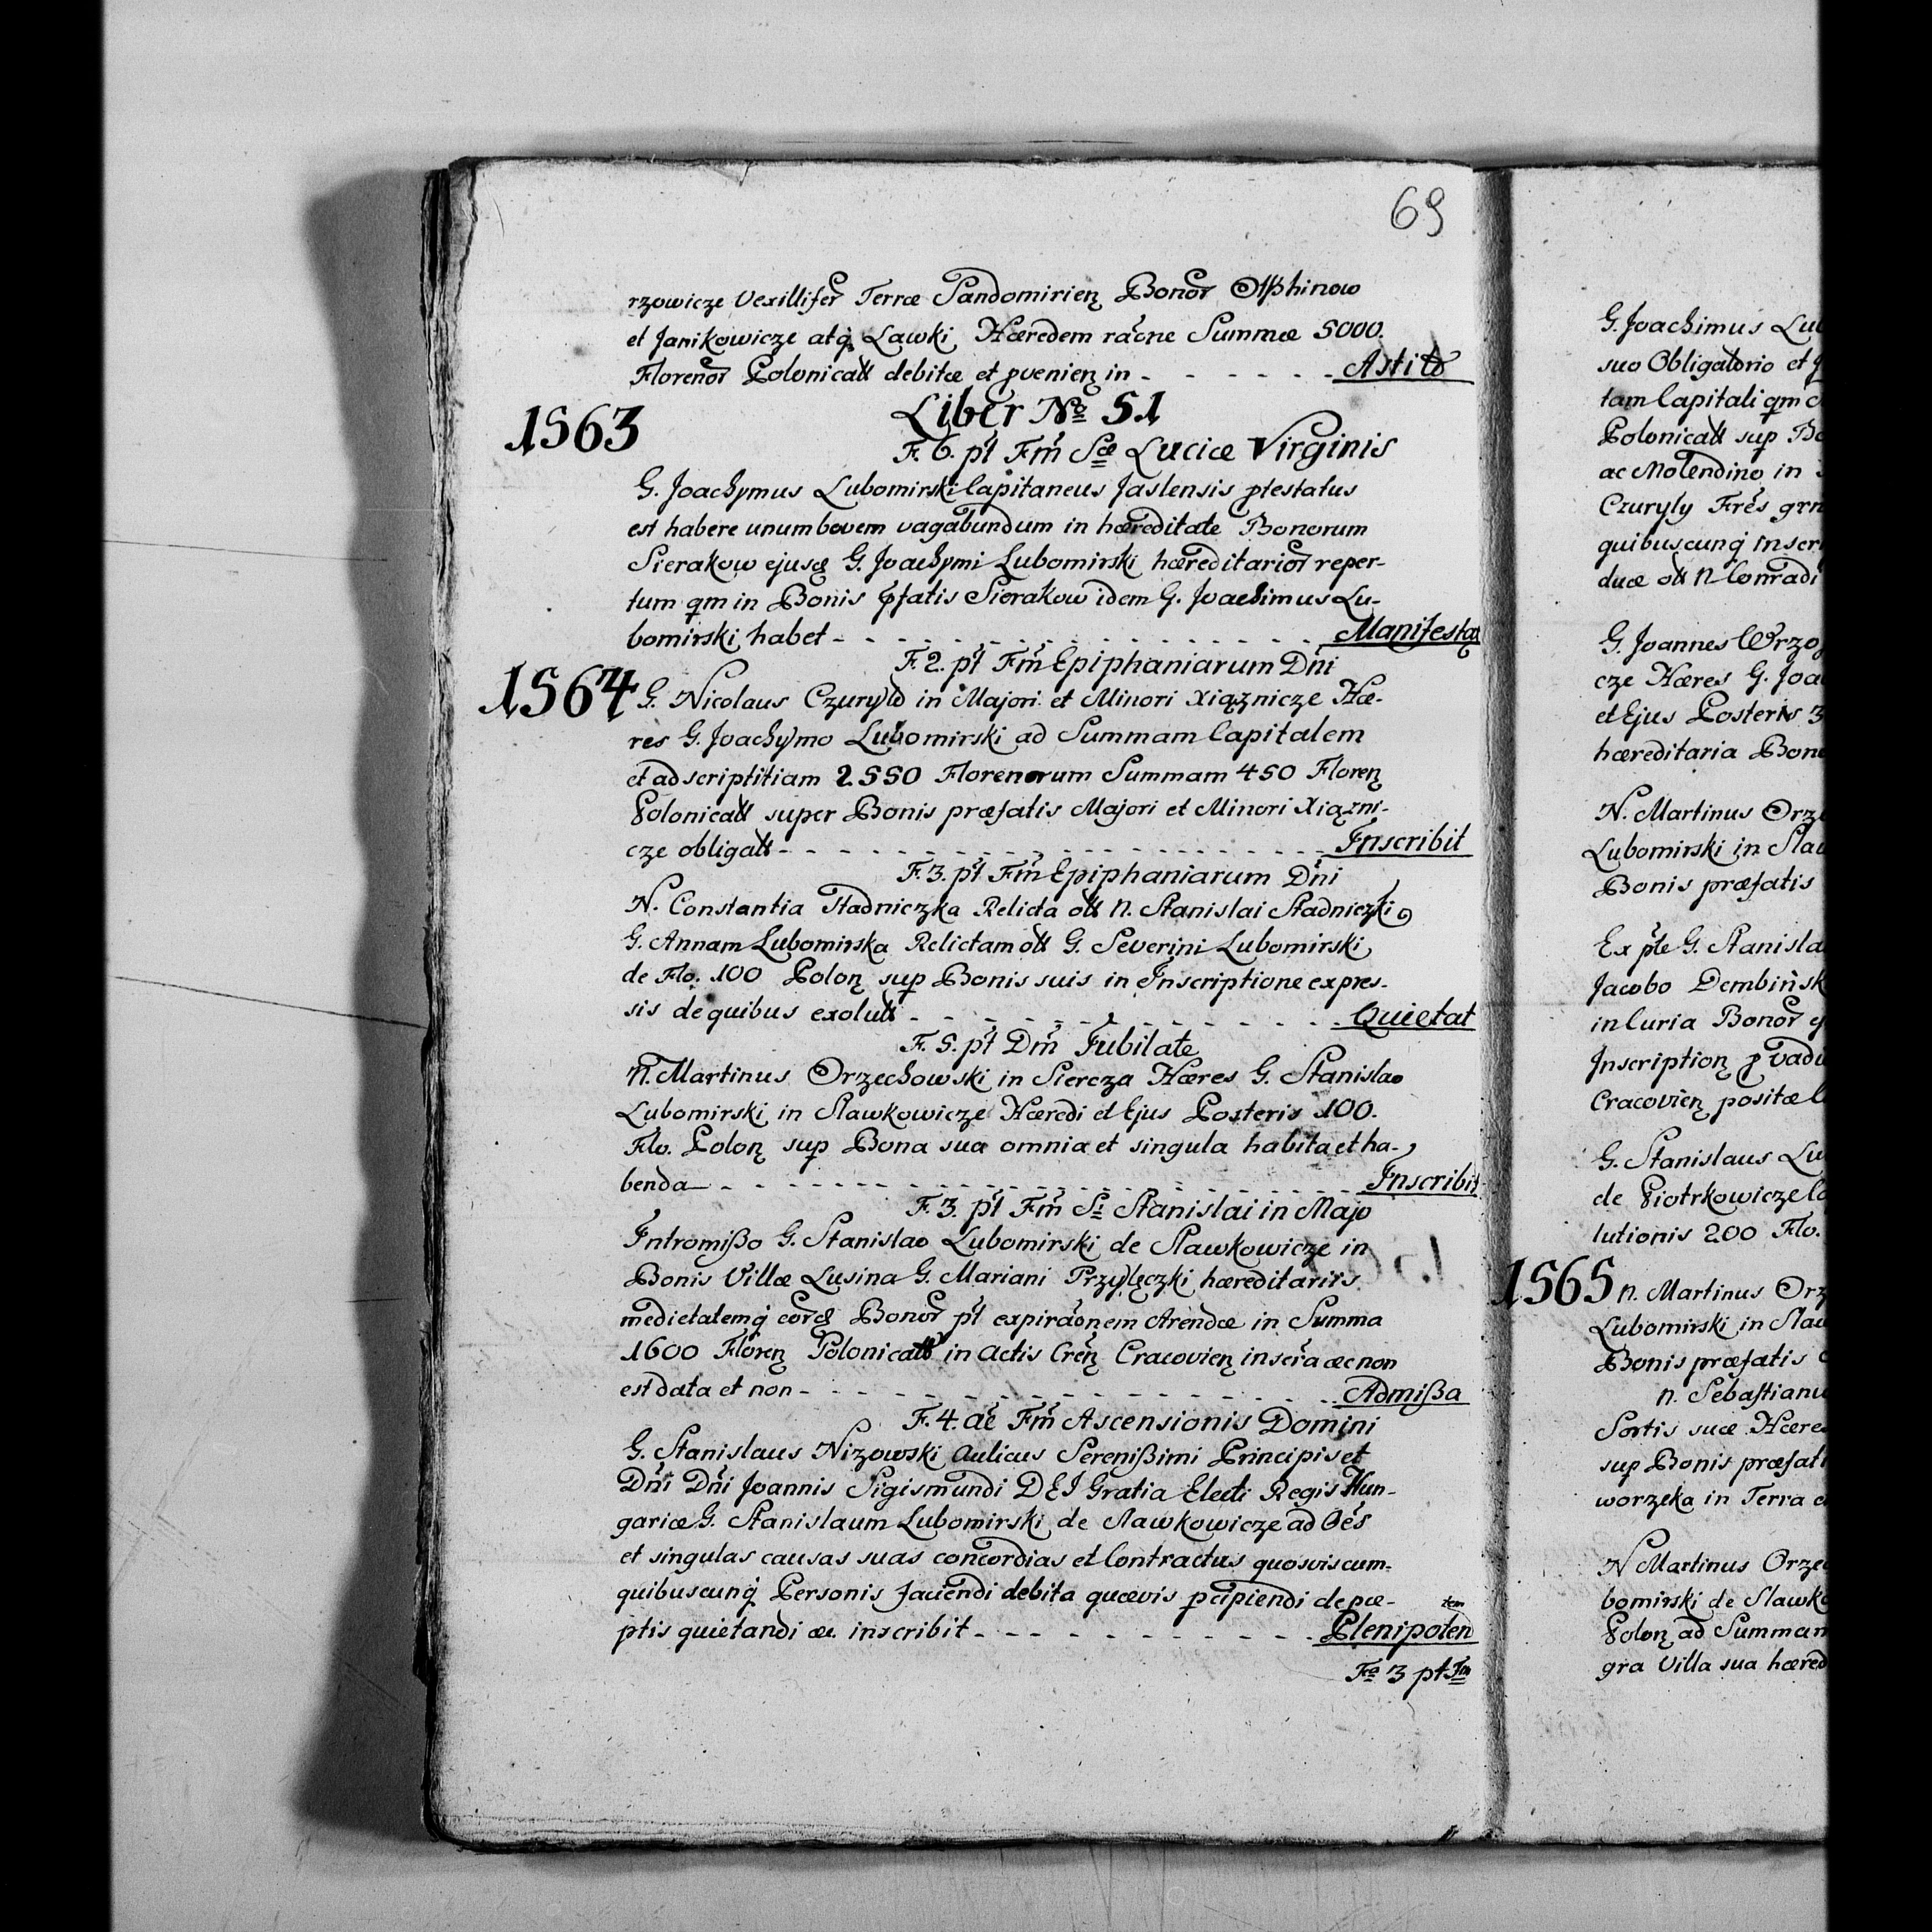 69
rzowicze Vexillifer Terræ Sandomirien Bonor
et Janikowicze atq Lawki Hæredem raöne Summæ 5000.
Florenor Polonicall debitæ et pvenien in - - - - - - Astito
1563
Liber No 51
F. 6. pt Fm Scæ Luciæ Virginis
G. Joachymus Lubomirski Capitaneus Jaslensis ptestatus
est habere unum bovem vagabundum in hæreditate Bonorum
Sierakow ejusq G. Joachymi Lubomirski hæreditarior reper-
tum qm in Bonis pfatis Sierakow idem G. Joachimus Lu-
bomirski habet - - - - - - Manifestaq
F. 2. pt Fm Epiphaniarum Dni
1564
G. Nicolaus Czuryło in Majori et Minori Xiąznicze Hæ-
res G. Joachymo Lubomirski ad Summam Capitalem
et adscriptitiam 2550 Florenorum Summam 450 Floren
Polonicall super Bonis præfatis Majori et Minori Xiązni-
cze obligall - - - - - - Inscribit
F. 3. pt Fm Epiphaniarum Dni
N. Constantia Stadniczka Relicta oll N. Stanislai Stadniczki
G. Annam Lubomirska Relictam oll G. Severini Lubomirski
de Flo. 100 Polon sup Bonis suis in Inscriptione expres-
sis de quibus exolull - - - - - - Quietat
F. 5. pt Dm Jubilate
N. Martinus Orzechowski in Siercza Hæres G. Stanislao
Lubomirski in Slawkowicze Hæredi et Ejus Posteris 100.
Flo. Polon sup Bona sua omnia et singula habita et ha-
benda - - - - - - Inscribit
F. 3. pt Fm Si Stanislai in Majo
Intromißo G. Stanislao Lubomirski de Slawkowicze in
Bonis Villæ Lusina G. Mariani Przyłęczki hæreditariis
medietatemq eorq Bonor pt expiraönem Arendæ in Summa
1600 Floren Polonicall in Actis Cren Cracovien inscra æc non
est data et non - - - - - - Admißa
F. 4. ae Fm Ascensionis Domini
G. Stanislaus Nizowski Aulicus Serenißimi Principis et
Dni Dni Joannis Sigismundi DEI Gratia Electi Regis Hun-
gariæ G. Stanislaum Lubomirski de Slawkowicze ad Oes
et singulas causas suas concordias et Contractus quosvis cum-
quibuscunq Personis faciendi debita quævis pcipiendi de pce-
ptis quietandi æc. inscribit - - - - - - Plenipoten tem
Fa 3 pt Fm
G. Joachimus Lub
suo Obligatorio et J
tam Capitali qm
Polonicall sup Bo
ac Molendino in
Czuryly Fres grn
quibuscunq inscr
duæ oll N Conradi
G. Joannes Wrzo
cze Hæres G. Joa
et Ejus Posteris 3
hæreditaria Bon
N. Martinus Orze
Lubomirski in Slaw
Bonis præfatis
Ex pte G. Stanisla
Jacobo Dembinsk
in Curia Bonor
Inscription p Vadi
Cracovien positæ
G. Stanislaus Lu
de Piotrkowicze
lutionis 200 Flo.
1565
N. Martinus Orz
Lubomirski in Slaw
Bonis præfatis
N. Sebastianu
Sortis suæ Hære
sup Bonis præfati
worzeka in Terra
N Martinus Orze
bomirski de Slawko
Polon ad Summam
gra Villa sua hæred